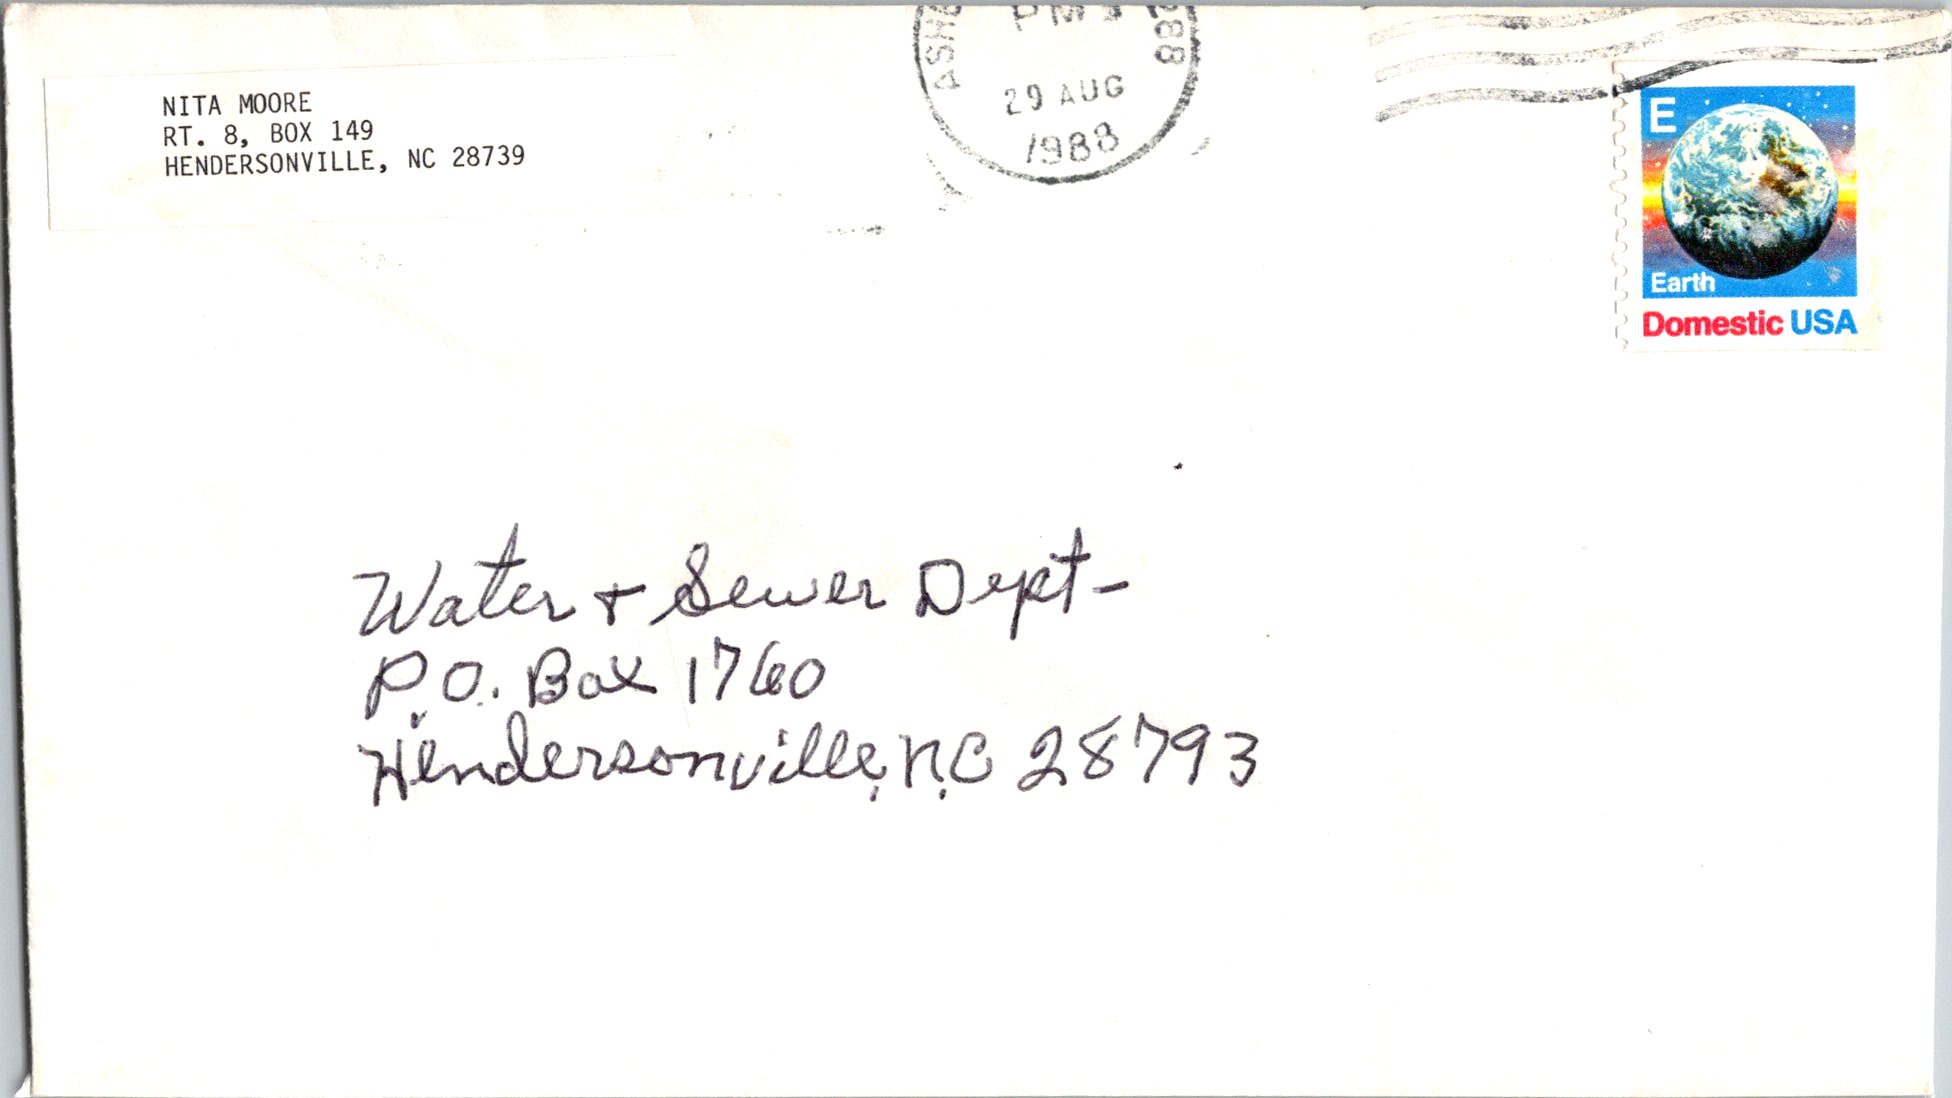 NITA MOORE
RT. 8, BOX 149
HENDERSONVILLE, NC 28739
PM
288
29 AUG
1988
E
Earth
Domestic USA
Water + Sewer Dept-
P.O. Box 1760
Hendersonville, N.C 28793